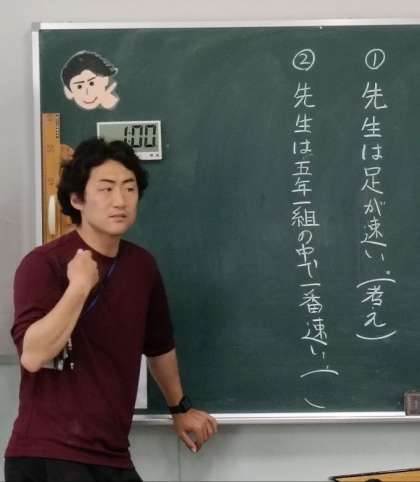 ① 先生は足が速い。(考え)
② 先生は五年一組の中で一番速い。( )
1:00